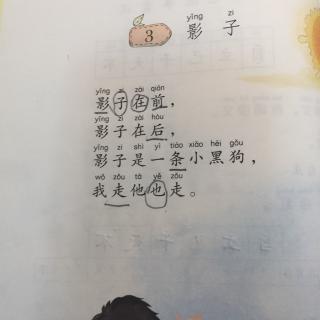 yǐng zi
3 影子
yǐng zi zài qián
影子在前，
yǐng zi zài hòu
影子在后，
yǐng zi shì yì tiáo xiǎo hēi gǒu
影子是一条小黑狗，
wǒ zǒu tā yě zǒu
我走他也走。